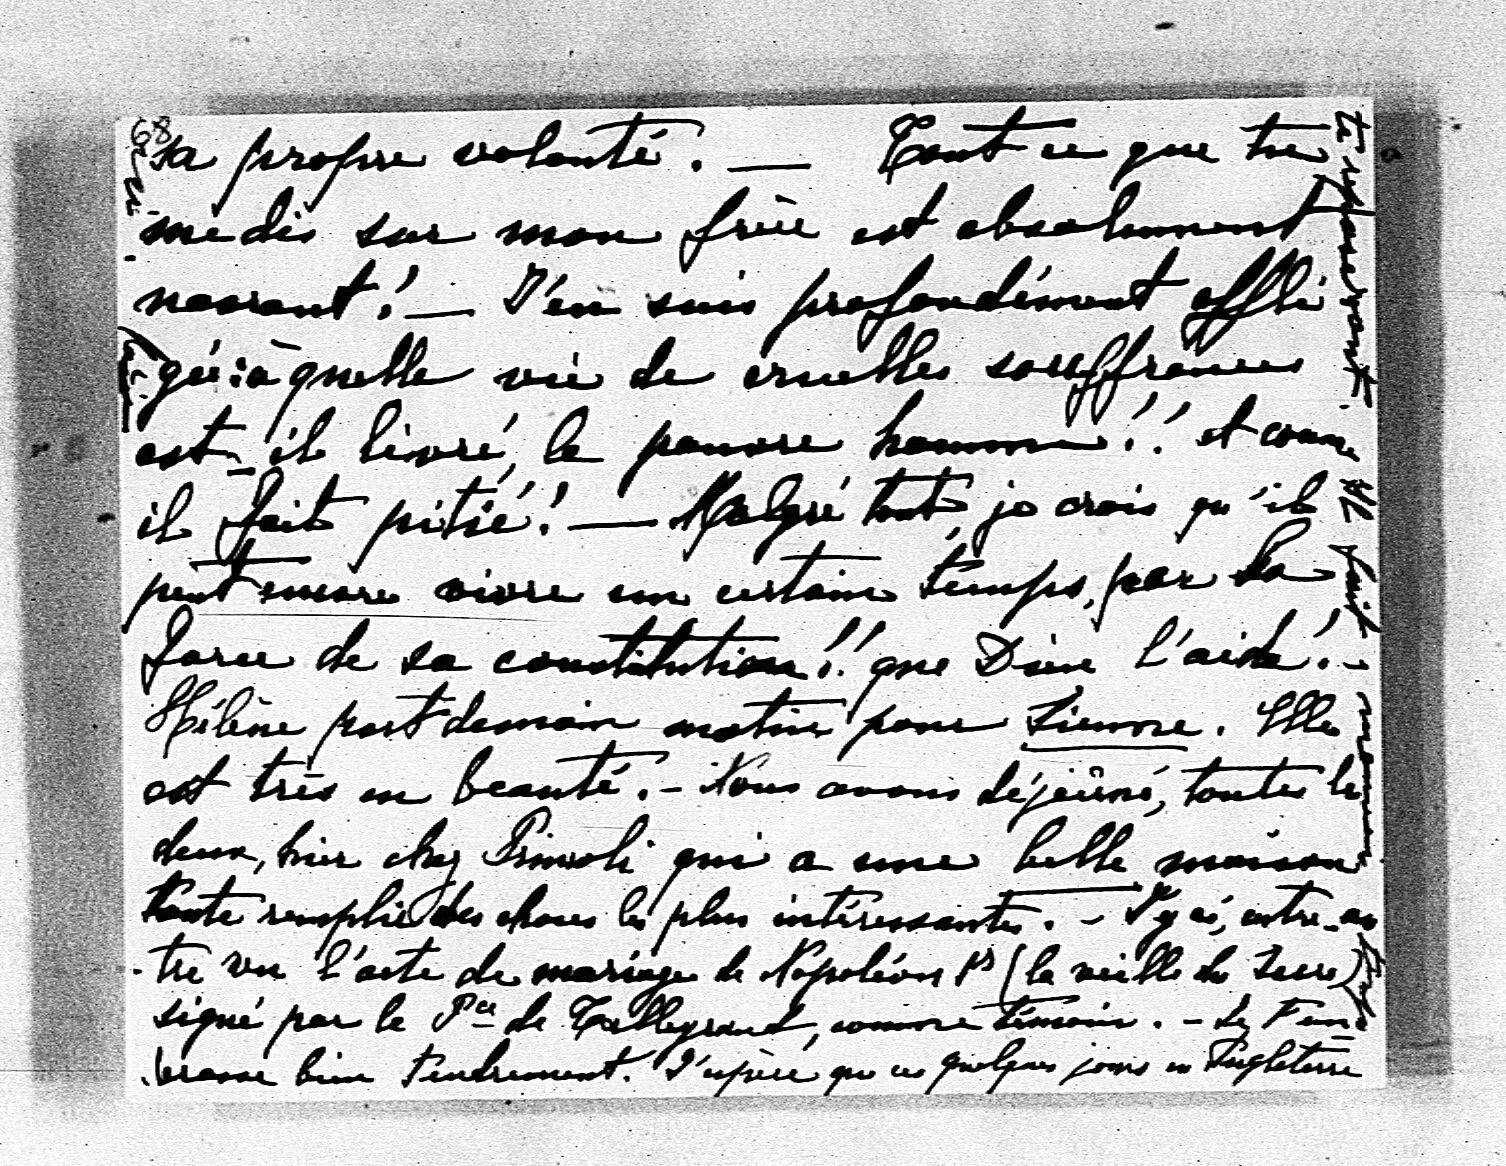 68
sa propre volonté. — Tout ce que tu
me dis sur mon frère est absolument
navrant! — J'en suis profondément affli
gée: à quelle vie de cruelles souffrances
est-il livré, le pauvre homme!! et comme
il fait pitié! — Malgré tout, je crois qu'il
peut encore vivre un certain temps, par la
force de sa constitution!! que Dieu l'aide! -
Hélène part demain matin pour Vienne. Elle
est très en beauté. - Nous avons déjeûné, toutes les
deux, hier chez Primoli qui a une belle maison
toute remplie des choses les plus intéressantes. - J'y ai, entre-au
-tre vu l'acte de mariage de Napoléon 1er (la veille du Sacre)
signé par le Pce de Talleyrand, comme témoin. - Je t'em
brasse bien tendrement. J'espère que ces quelques jours en Angleterre
te reposeront. Il fait